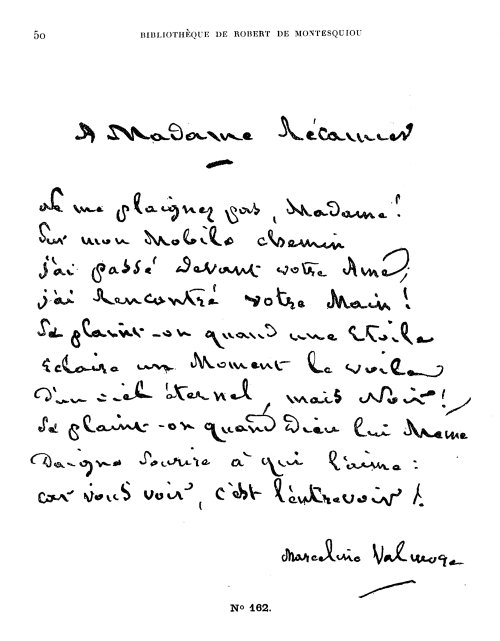 50
BIBLIOTHÈQUE DE ROBERT DE MONTESQUIOU
A Madame Récamier
Ne me plaignez pas, Madame!
Sur mon Mobile chemin
j'ai passé devant votre Ame,
j'ai Rencontré votre Main!
Se plaint-on quand une Etoile
Eclaire un Moment le voile
D'un ciel éternel, mais Noir!
Se plaint-on quand Dieu lui Meme
Daigne Sourire à qui l'aime:
car vous voir, c'est l'entrevoir!
Marceline Valmore
Nº 162.